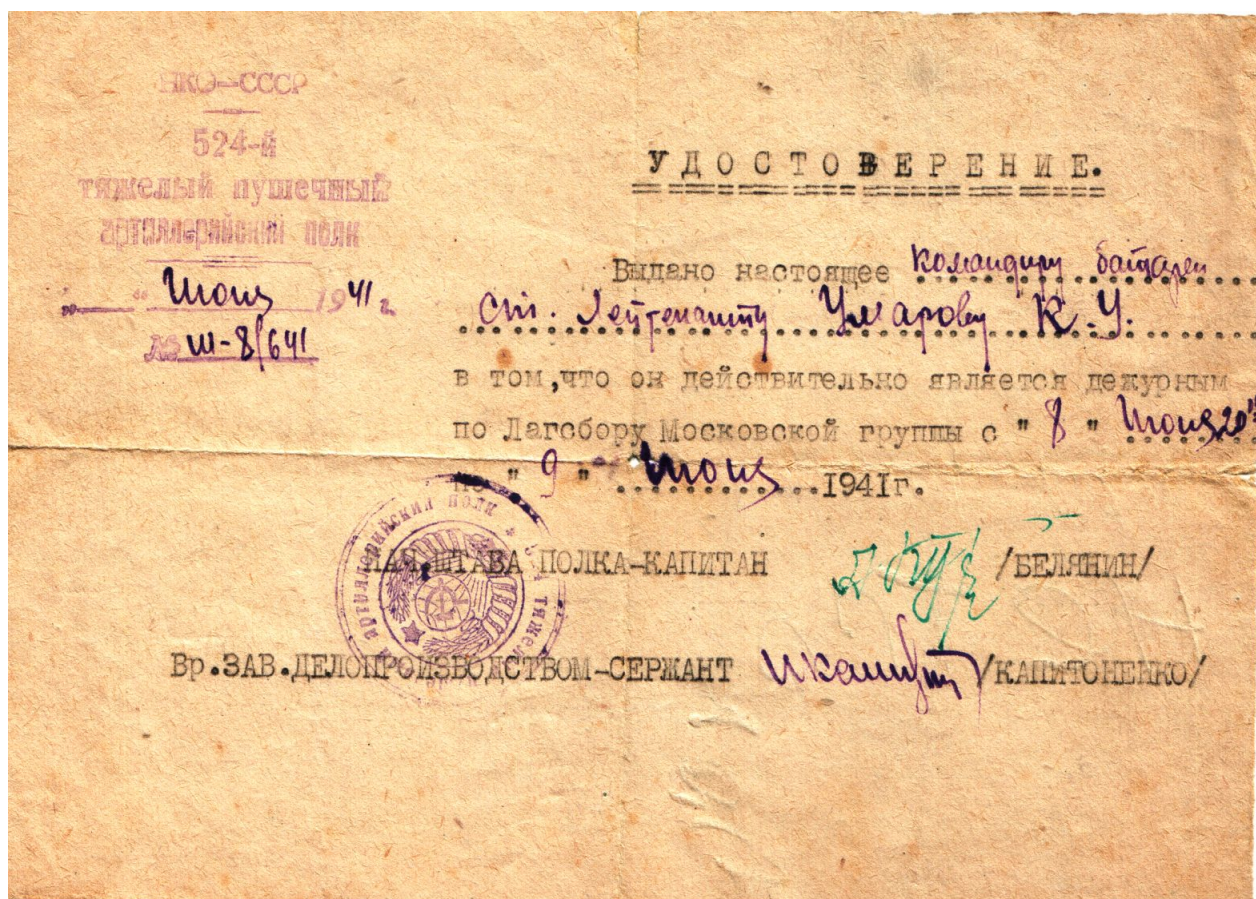 НКО—СССР
524-й
тяжелый пушечный
артиллерийский полк
"___" Июня 1941 г.
№ Ш-8/641
УДОСТОВЕРЕНИЕ.
Выдано настоящее командиру батареи
ст. Лейтенанту Умарову К.У.
в том,что он действительно является дежурным
по Лагсбору Московской группы с " 8 " Июня
по " 9 " Июня 1941г.
НАЧ.ШТАБА ПОЛКА-КАПИТАН /БЕЛЯНИН/
Вр.ЗАВ.ДЕЛОПРОИЗВОДСТВОМ-СЕРЖАНТ /КАПИТОНЕНКО/
артиллерийский полк * 524 тяжел